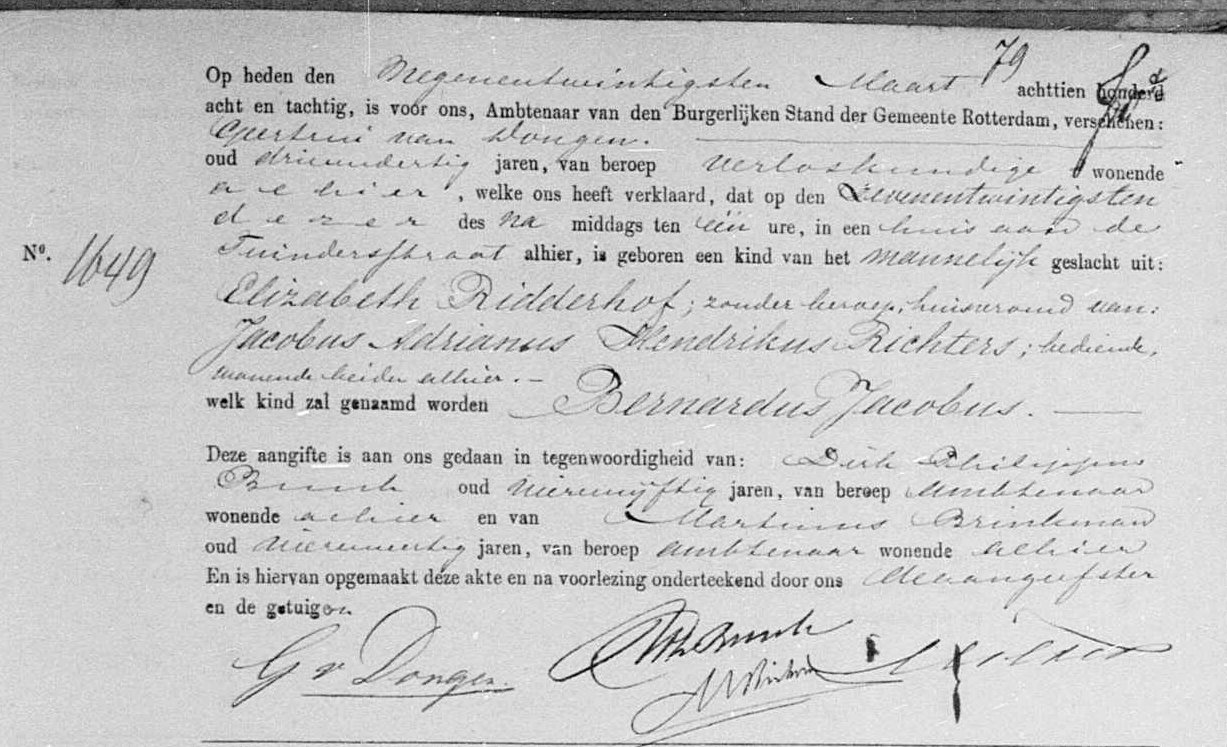 79
Op heden den Negenentwintigsten Maart achttien honderd
acht en tachtig, is voor ons, Ambtenaar van den Burgerlijken Stand der Gemeente Rotterdam, verschenen:
Geertrui van Dongen.
oud drieendertig jaren, van beroep verloskundige wonende
alhier, welke ons heeft verklaard, dat op den Zevenentwintigsten
dezer des na middags ten één ure, in een huis aan de
No. 1649
Tuinderstraat alhier, is geboren een kind van het mannelijk geslacht uit:
Elizabeth Ridderhof; zonder beroep, huisvrouw van:
Jacobus Adrianus Hendrikus Richters; bediende,
wonende beiden alhier. –
welk kind zal genaamd worden Bernardus Jacobus.
Deze aangifte is aan ons gedaan in tegenwoordigheid van: Dirk Philippus
oud vierenvijftig jaren, van beroep ambtenaar
wonende alhier en van Martinus Brinkman
oud jaren, van beroep ambtenaar wonende alhier
En is hiervan opgemaakt deze akte en na voorlezing onderteekend door ons de aangeefster
en de getuigen
G v Dongen.